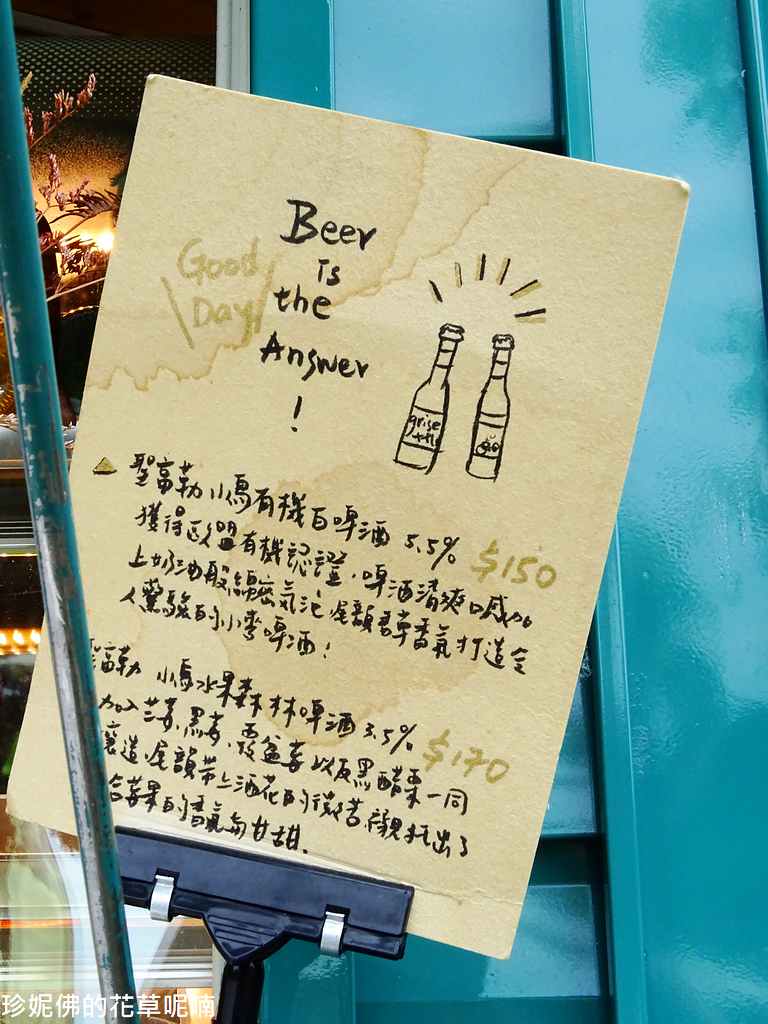 Good
Day
Beer
is
the
Answer
!
聖富勒 小鳥有機白啤酒 5.5% $150
獲得歐盟有機認證,啤酒清爽喊加
上奶油般綿密氣泡,尾韻香草香氣打造令
人驚豔的小麥啤酒!
聖富勒 小鳥水果森林啤酒 3.5% $170
加入草莓,黑莓,覆盆莓以及黑醋栗一同
釀造,尾韻帶上酒花的微苦,襯托出了
莓果的香氣與甘甜.
珍妮佛的花草呢喃